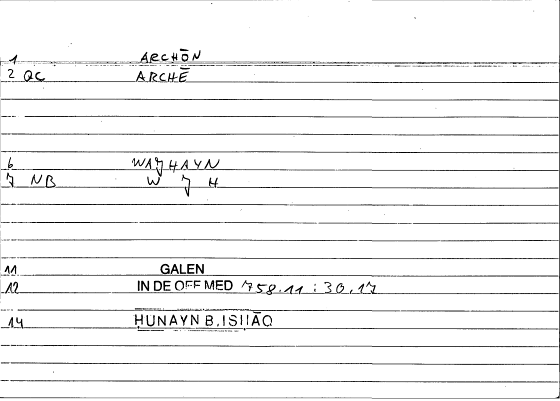 1 ARCHŌN
2 QC ARCHĒ
6 WAJHAYN
7 NB W J H
11 GALEN
12 IN DE OFF MED 758.11 : 30.17
14 ḤUNAYN B. ISḤĀQ